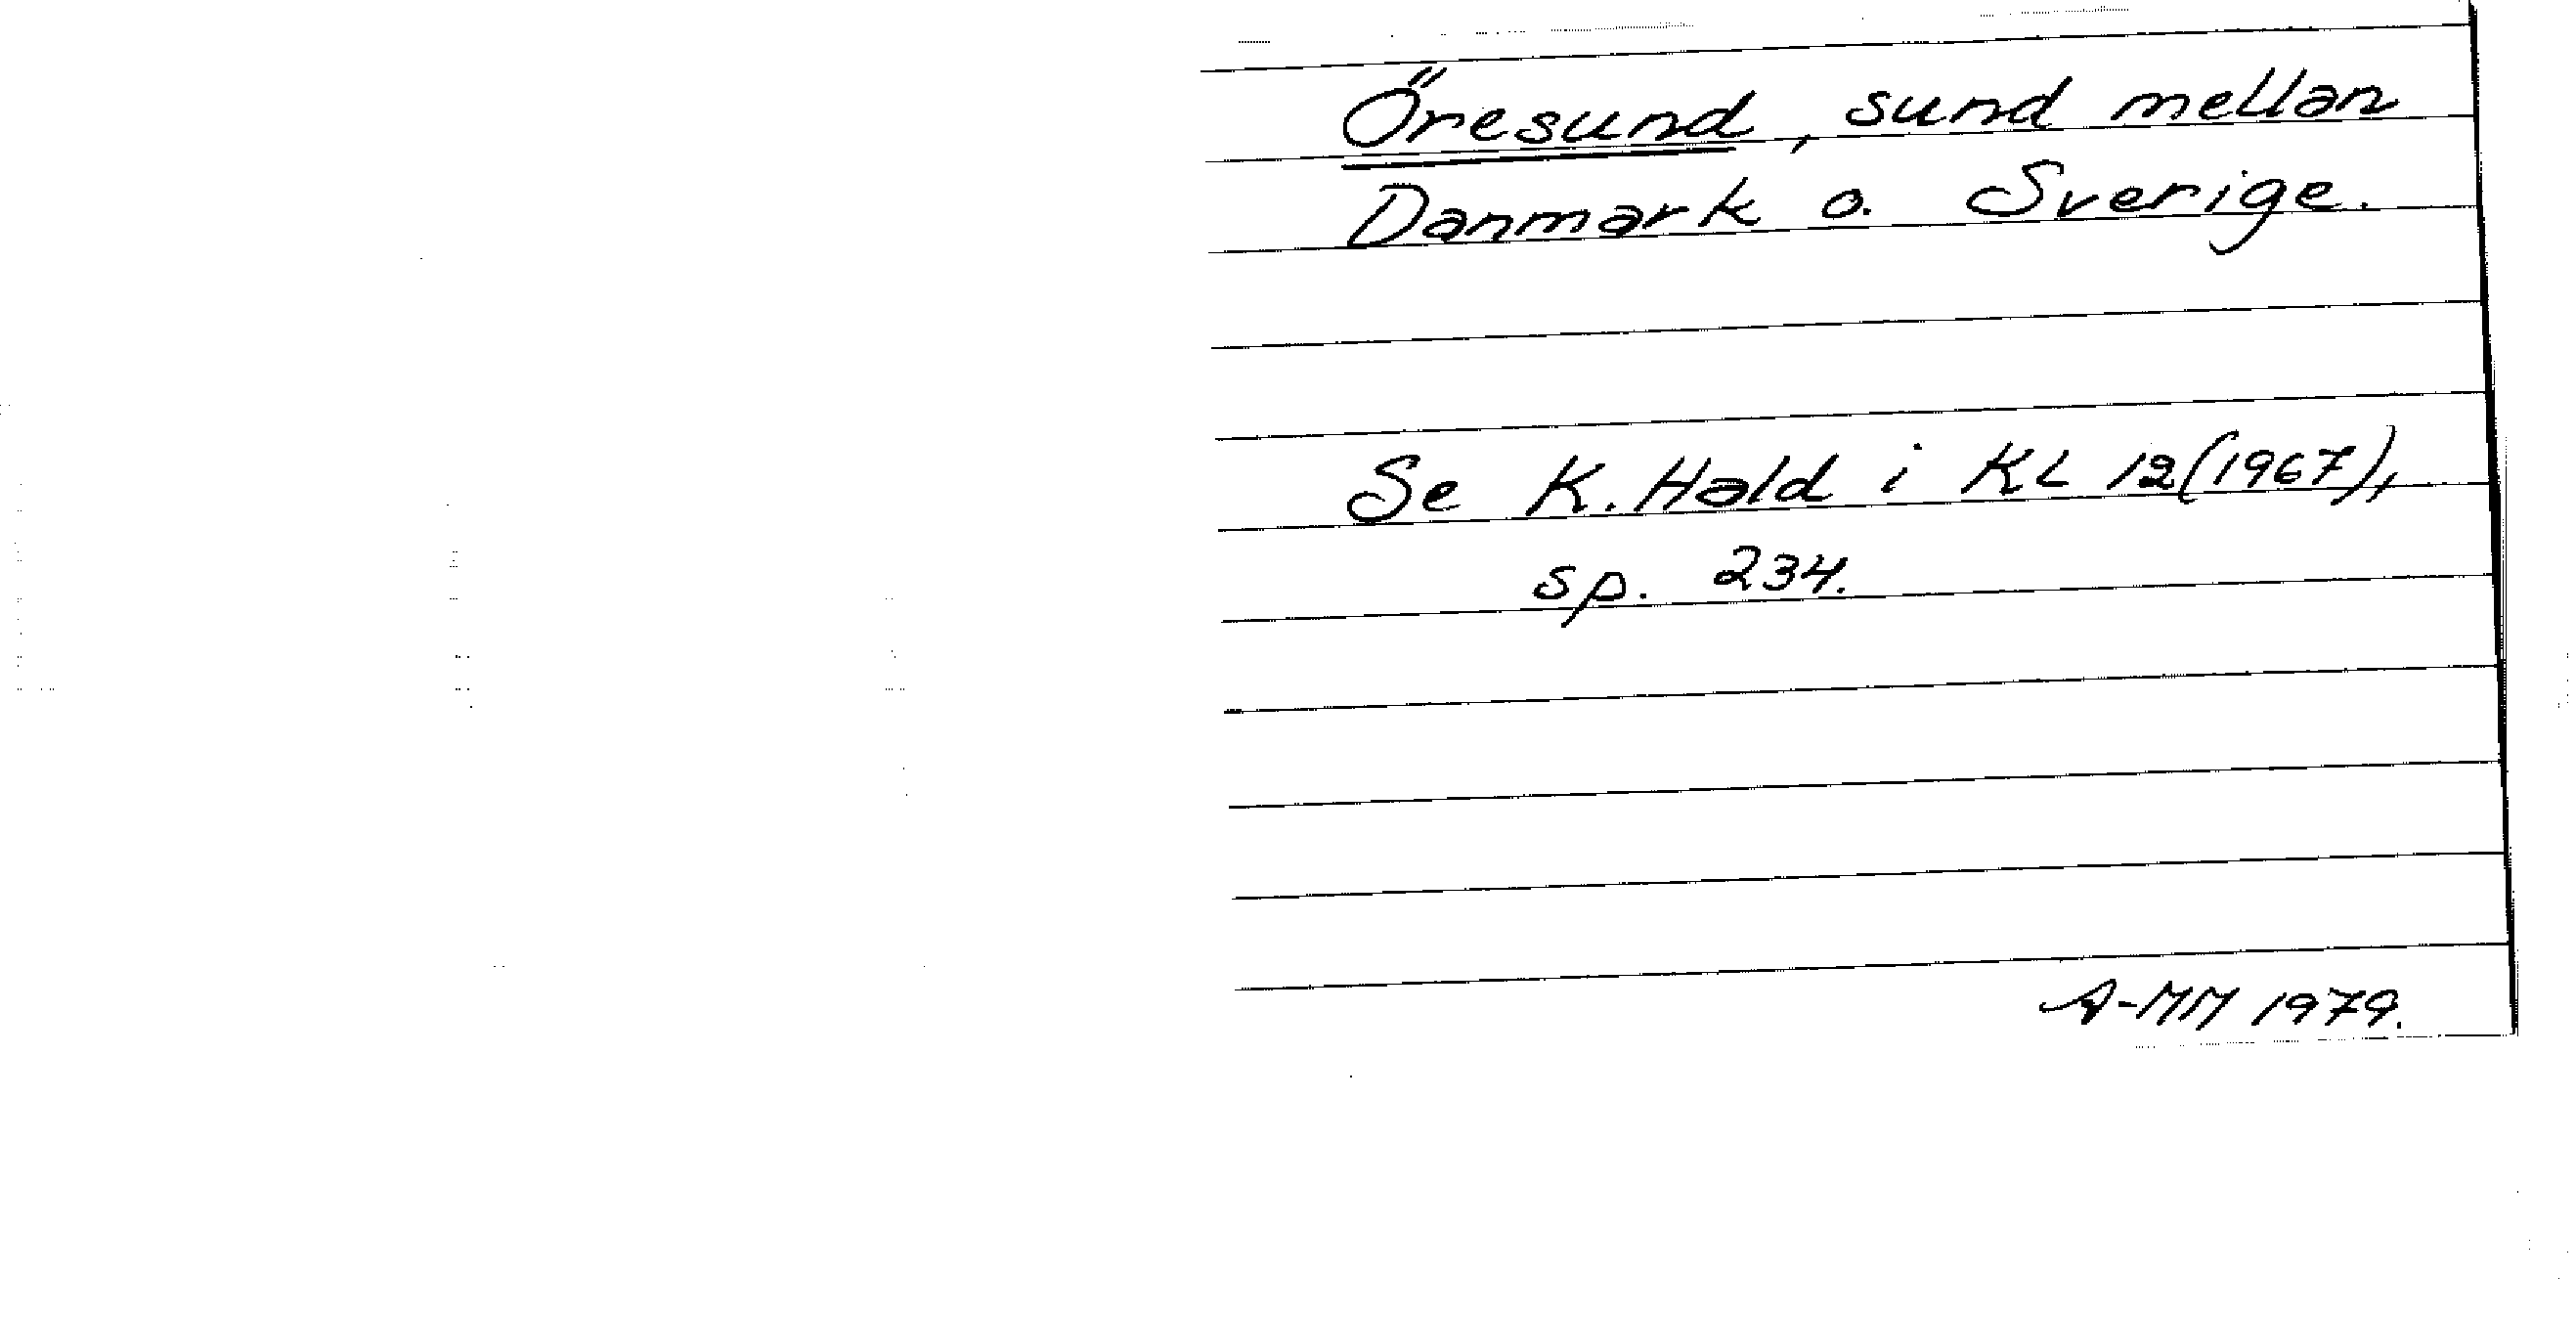 Öresund, sund mellan
Danmark o. Sverige.
Se K. Hald i KL 12(1967),
sp. 234.
A-MM 1979.